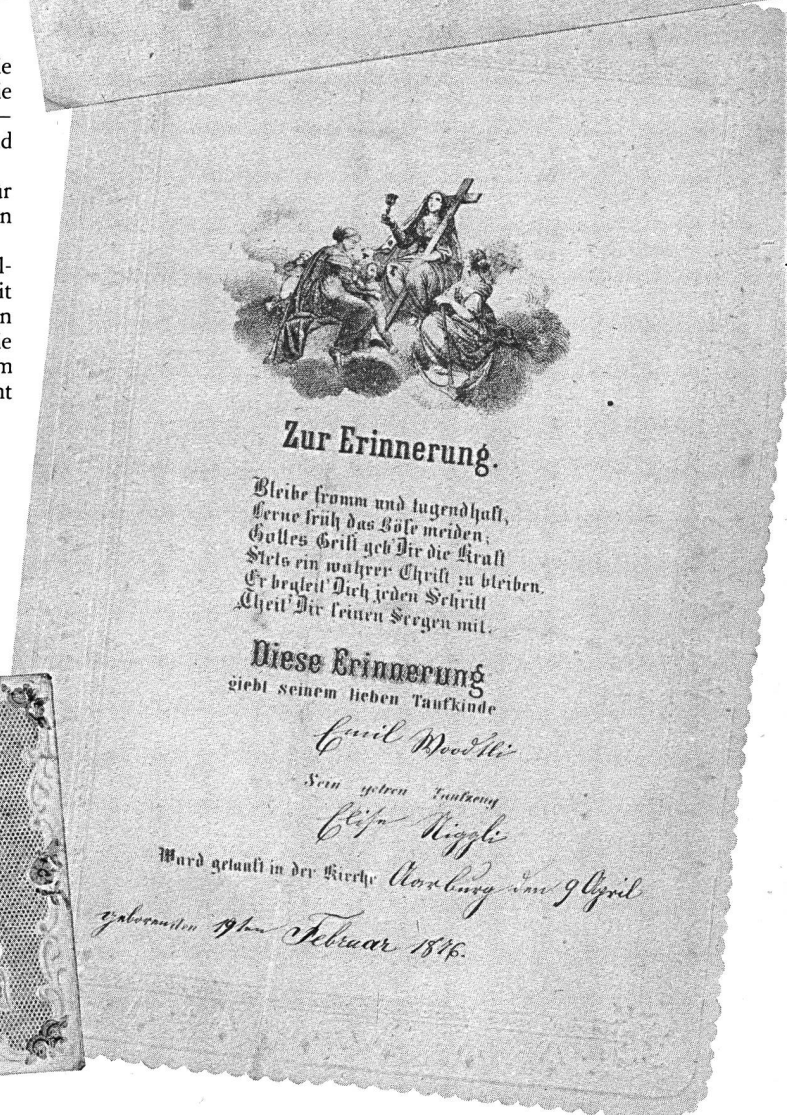 e
e
–
d
ur
n
l-
it
n
e
m
nt
Zur Erinnerung.
Bleibe fromm und tugendhaft,
Lerne früh das Böse meiden;
Gottes Geist geb' Dir die Kraft
Stets ein wahrer Christ zu bleiben.
Er begleit' Dich jeden Schritt
Theil' Dir seinen Seegen mit.
Diese Erinnerung
giebt seinem lieben Taufkinde
Emil Woodtli
Sein getreu Taufzeug
Elise Niggli
Ward getauft in der Kirche Aarburg den 9 April
geboren den 19ten Februar 1876.